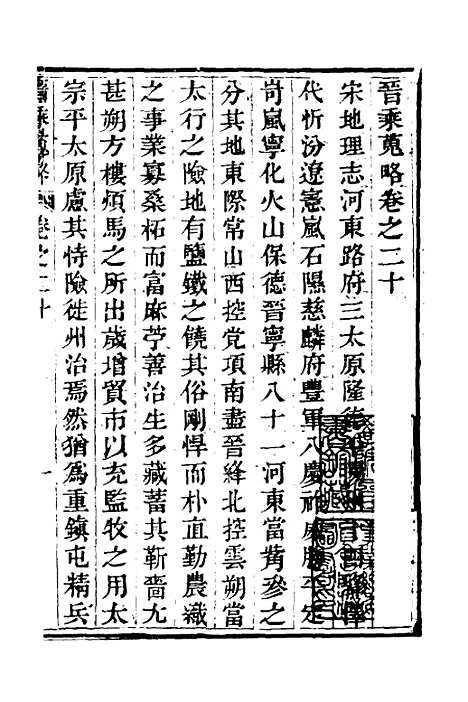 晉乘蒐略卷之二十
宋地理志河東路府三太原隆德
代忻汾遼憲嵐石隰慈麟府豐軍八慶祚威勝平定
岢嵐寧化火山保德晉寧縣八十一河東當觜參之
分其地東際常山西控党項南盡晉絳北控雲朔當
太行之險地有鹽鐵之饒其俗剛悍而朴直勤農織
之事業寡桑柘而富麻苧善治生多藏蓄其靳嗇尤
甚朔方樓煩馬之所出歲增貿市以充監牧之用太
宗平太原慮其恃險徙州治焉然猶爲重鎮屯精兵
晉乘蒐略 卷之二十 一